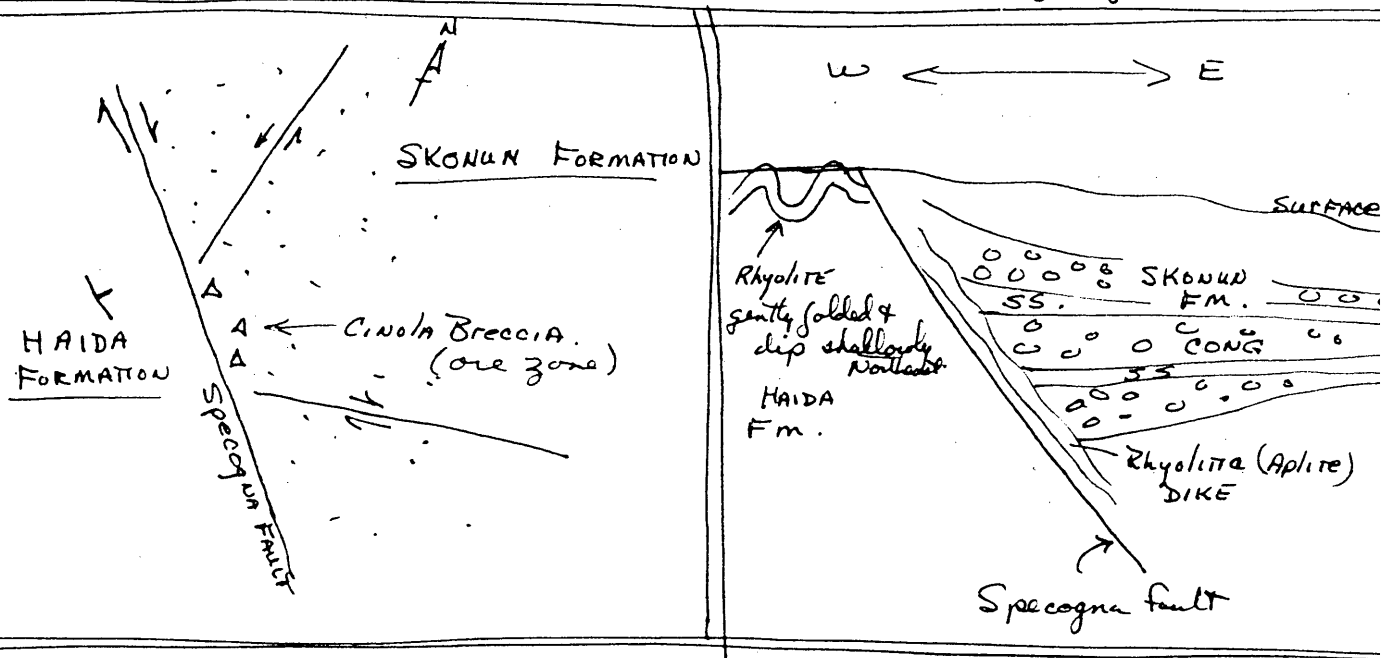 N
SKONUM FORMATION
HAIDA
FORMATION
CINOLA BRECCIA.
(ore zone)
SPECOGNA FAULT
W E
SURFACE
Rhyolite
gently folded &
dip shallowly
Northeast.
HAIDA
Fm.
SKONUN
FM.
SS.
CONG
SS
Rhyolite (Aplite)
DIKE
Specogna fault